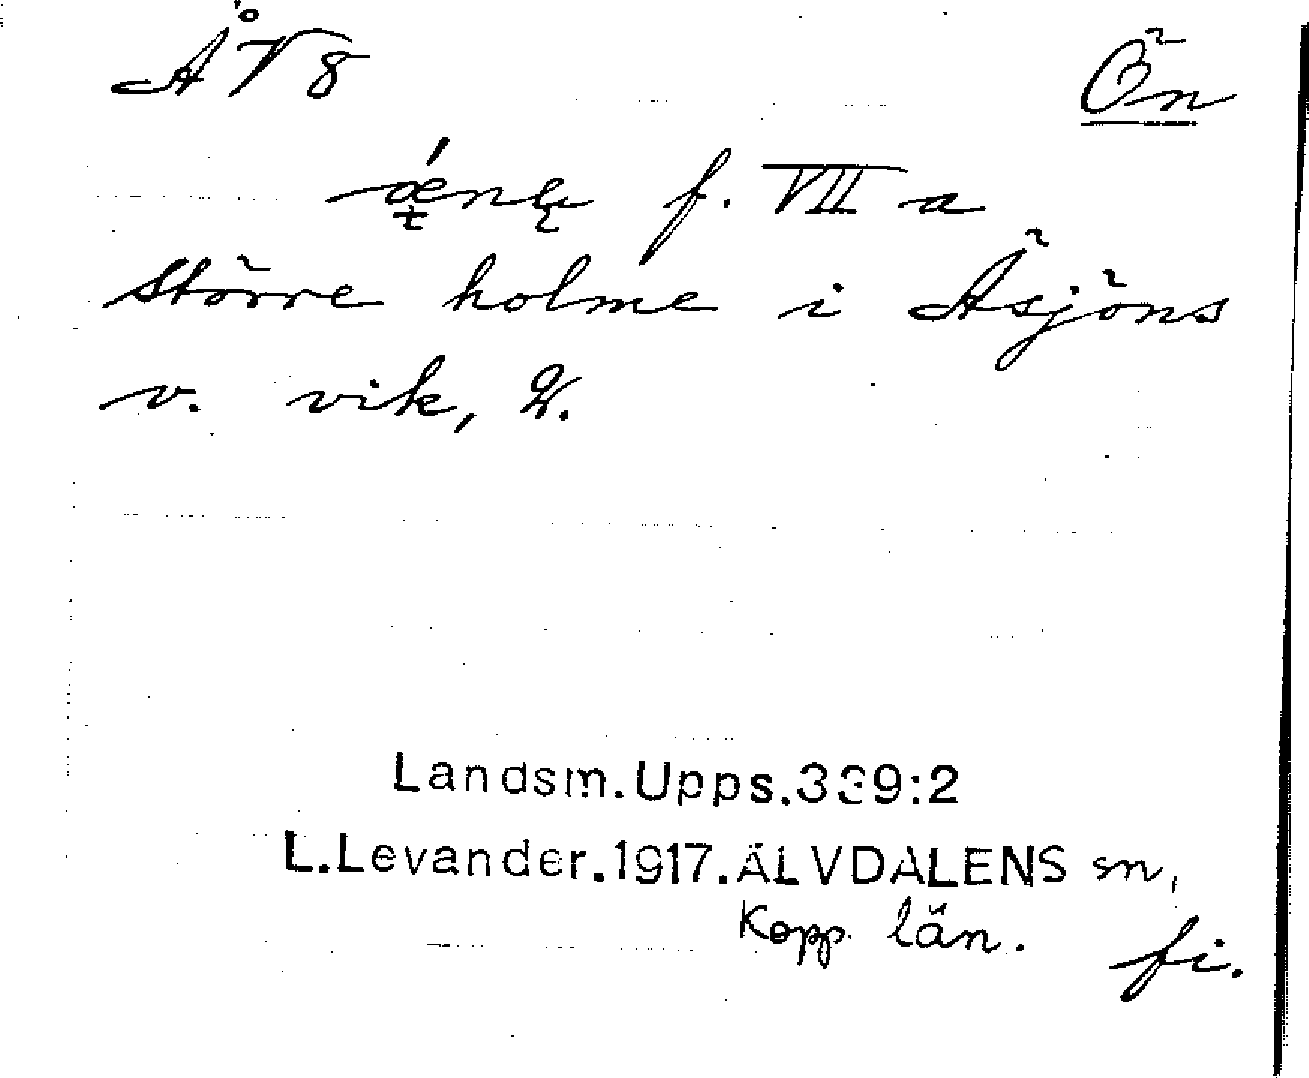 ÅV8 Ön
f. VII a
Större holme i Åsjöns
v. vik, 2.
Landsm. Upps. 339:2
L. Levander. 1917. ÄLVDALENS sn,
Kopp. län. fi.